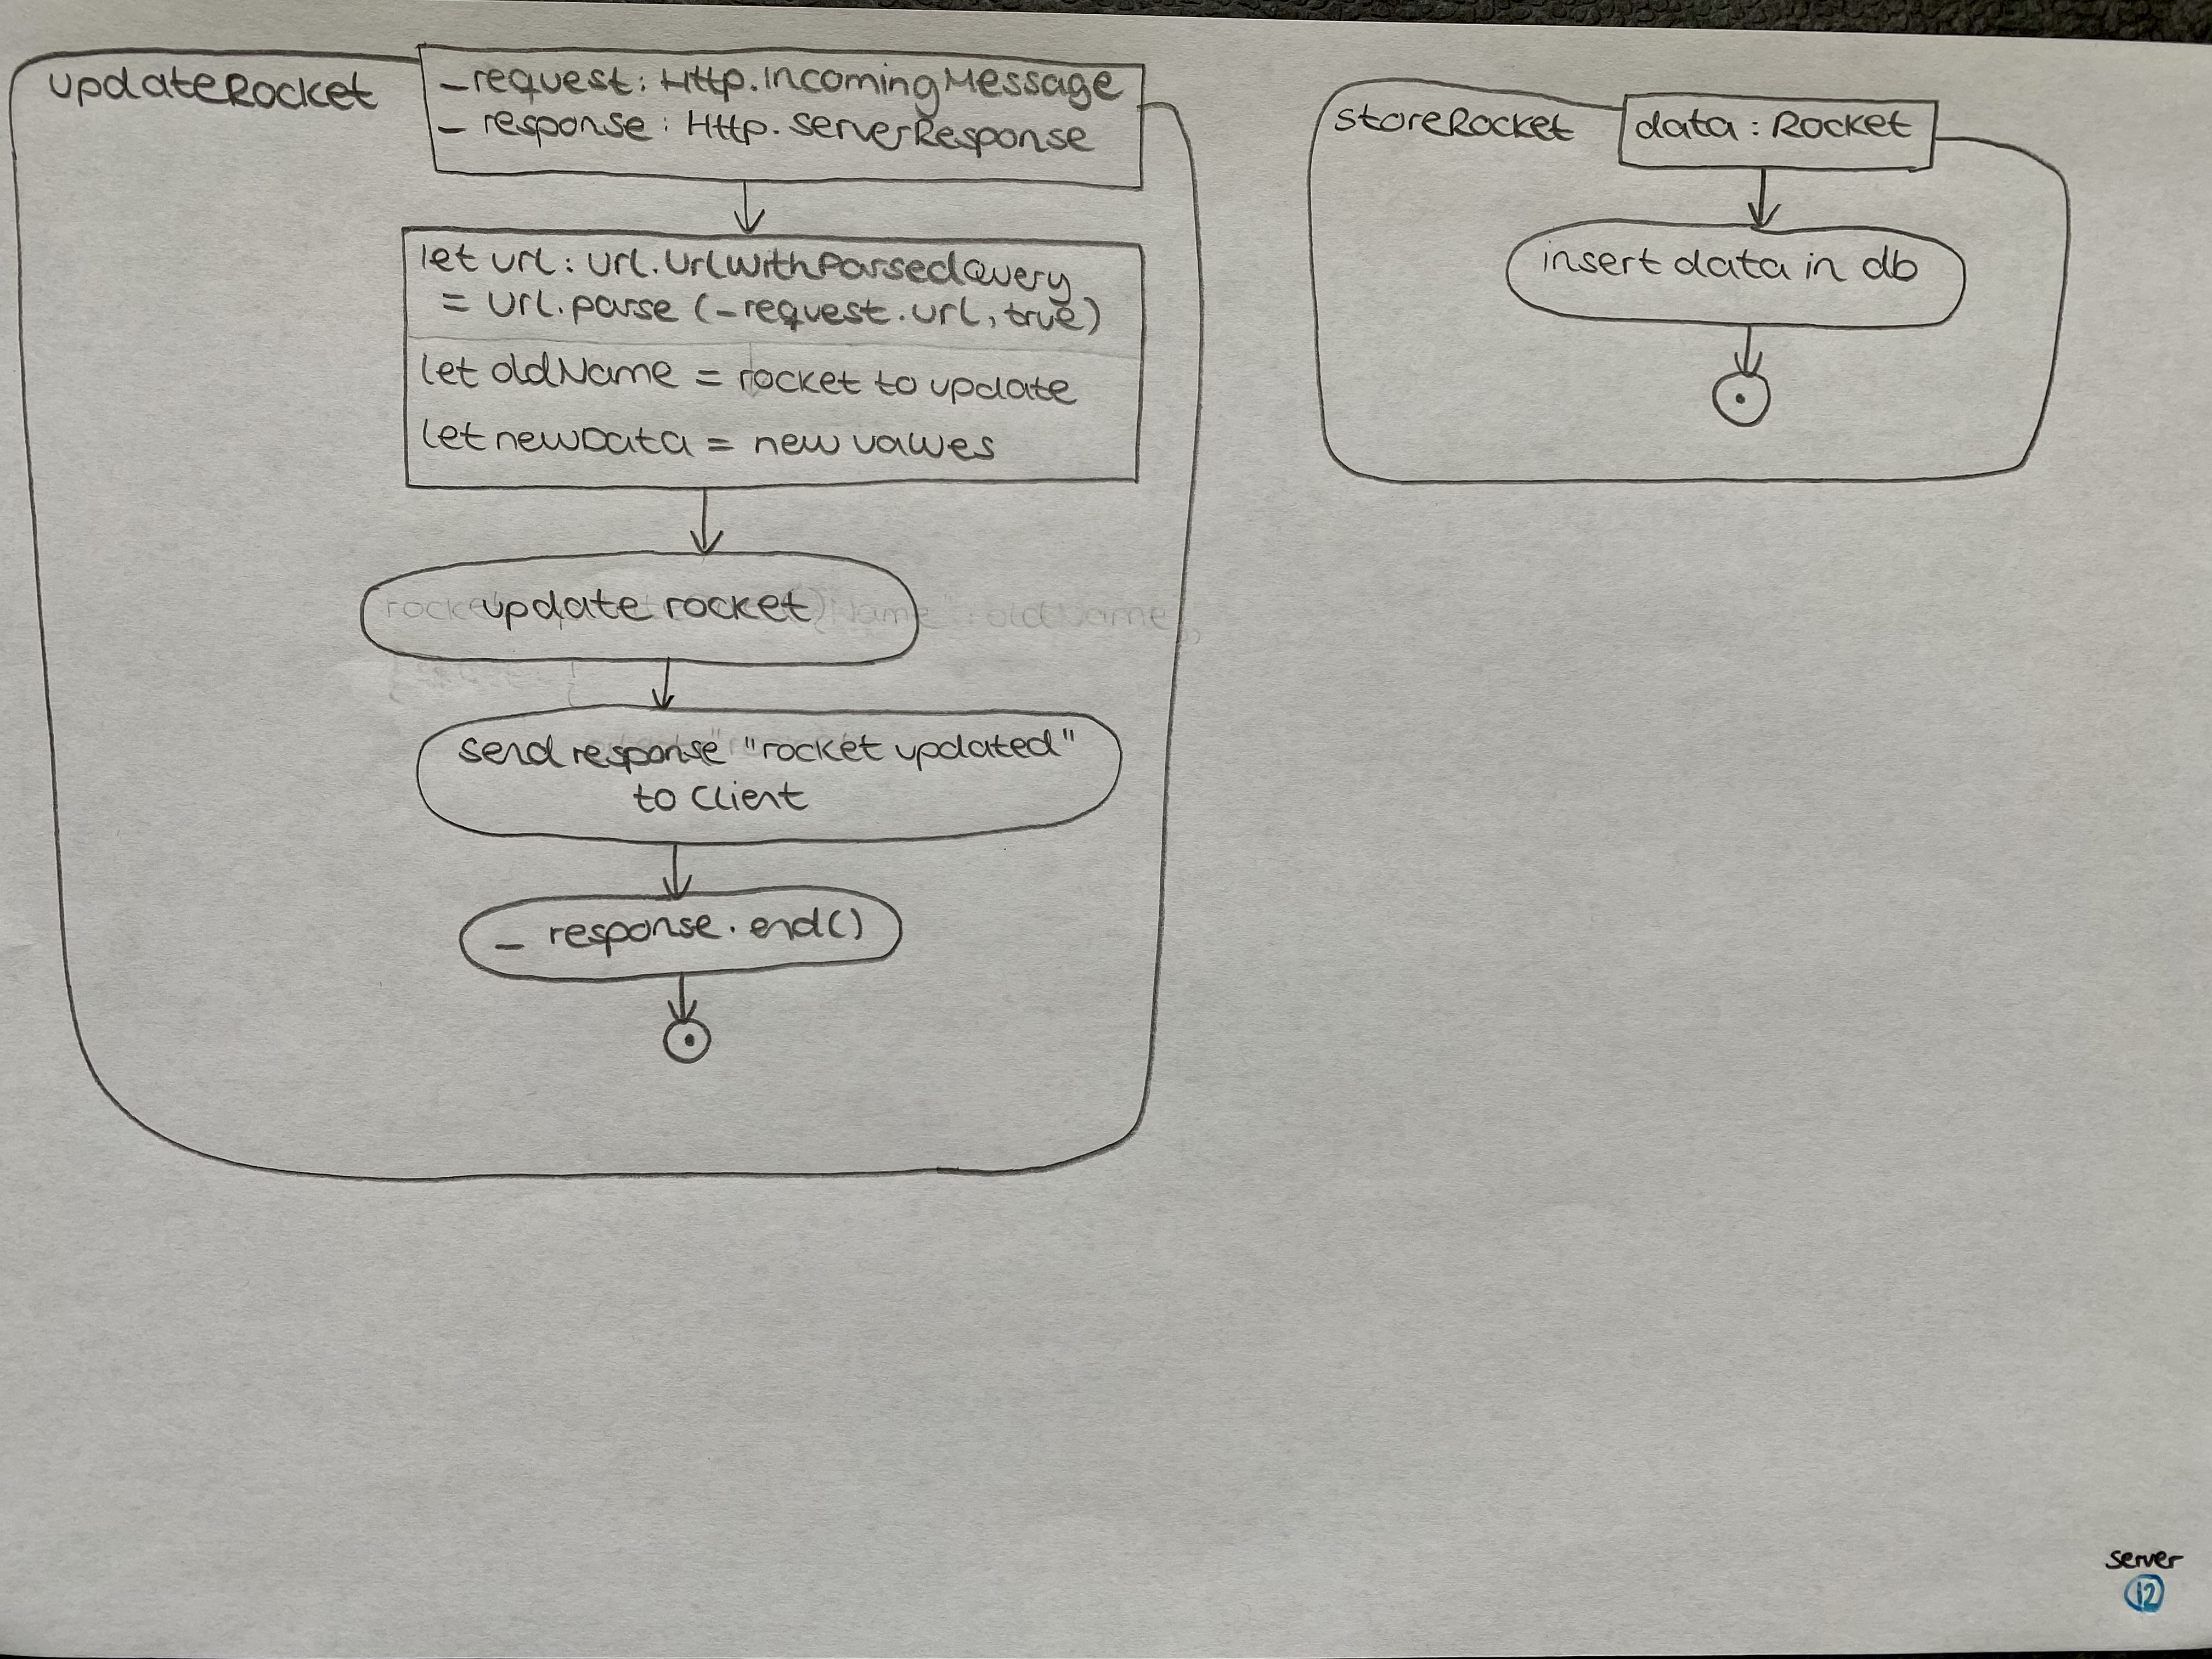 updateRocket
_request: Http.IncomingMessage
_ response: Http.ServerResponse
let url: Url.UrlWithParsedQuery
= Url.parse (_request.url, true)
let oldName = rocket to update
let newData = new values
update rocket
send response "rocket updated"
to Client
_ response.end()
storeRocket
data: Rocket
insert data in db
server
12